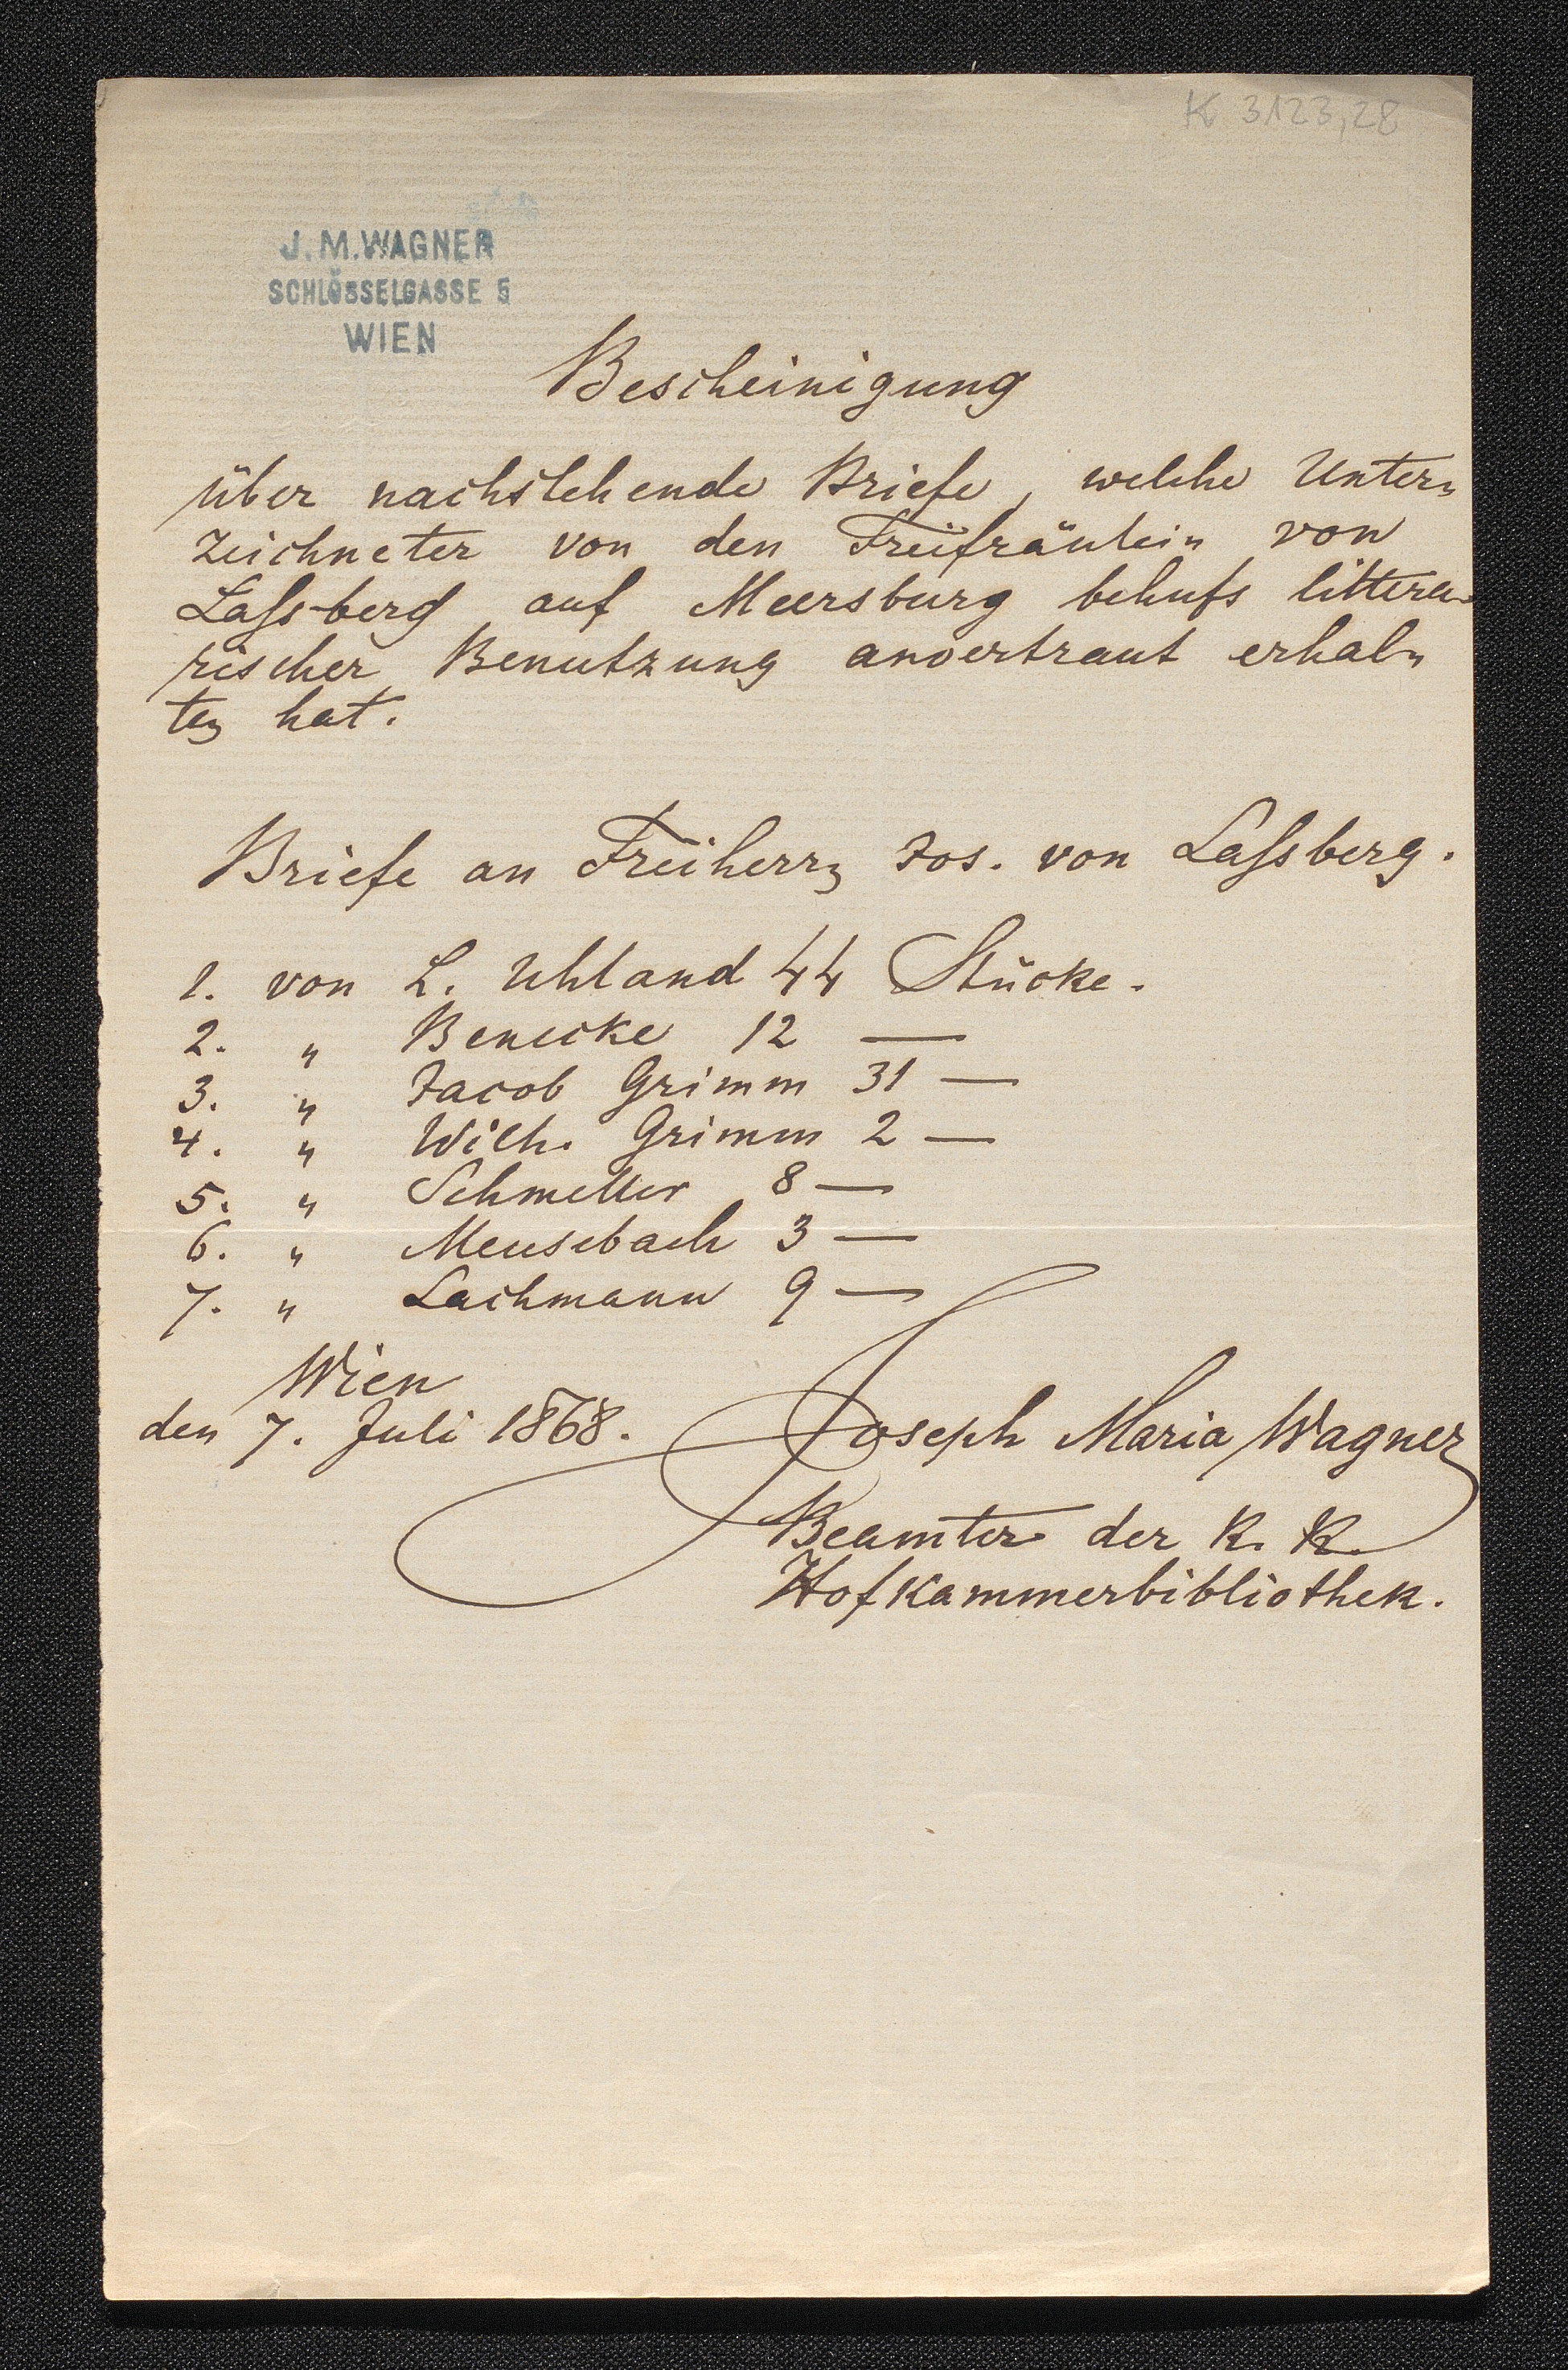 K 3123,28
J. M. WAGNER
SCHLÖSSELGASSE 5
WIEN
Bescheinigung
über nachstehende Briefe, welche Unter-
zeichneter von den Freifräulein von
Laſsberg auf Meersburg behufs littera-
rischer Benutzung anvertraut erhal-
ten hat.
Briefe an Freiherrn Jos. von Laſsberg.
1. von L. Uhland 44 Stücke.
2. " Benecke 12 —
3. " Jacob Grimm 31 —
4. " Wilh. Grimm 2 —
5. " Schmeller 8 —
6. " Meusebach 3 —
7. " Lachmann 9 —
Wien
den 7. Juli 1868. Joseph Maria Wagner
Beamter der k. k.
Hofkammerbibliothek.